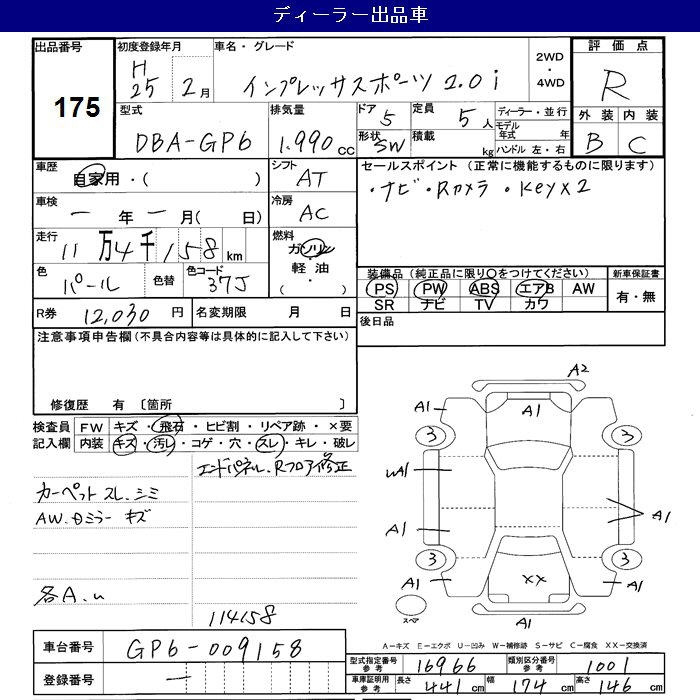 ディーラー出品車
出品番号
175
初度登録年月
H
25 2月
車名・グレード
インプレッサスポーツ 2.0i
2WD
・
4WD
評価点
R
外装 内装
B C
型式
DBA-GP6
排気量
1.990 cc
ドア 5
定員 5人
形状 SW
積載 kg
ディーラー・並行
モデル年式 年
ハンドル 左・右
車歴
自家用・( )
シフト
AT
車検
一年一月( 日)
冷房
AC
走行
11万4千158km
燃料
ガソリン
・
軽油
( ・ )
色
パール
色替
色コード
37J
R券 12,030円
名変期限 月 日
セールスポイント (正常に機能するものに限ります)
・ナビ・Rカメラ ・Keyx2
装備品(純正品に限り○をつけてください)
PS PW ABS エアB AW
SR ナビ TV カワ
新車保証書
有・無
後日品
注意事項申告欄(不具合内容等は具体的に記入して下さい)
修復歴 有 〔箇所 〕
検査員記入欄
FW キズ・飛石・ヒビ割・リペア跡・×要
内装 キズ・汚れ・コゲ・穴・スレ・キレ・破レ
エンドパネル、Rフロア修正
カーペット スレ、シミ
AW、Dミラー キズ
各A.u
114158
A2
A1
A1
3
3
uA1
A1
A1
A1
3
3
A1
A1
XX
A1
スペア
A-キズ E-エクボ U-凹み W-補修跡 S-サビ C-腐食 XX-交換済
車台番号
GP6-009158
登録番号
一
型式指定番号
参考
16966
類別区分番号
参考
1001
車庫証明用
参考
長さ 441cm
幅 174cm
高さ 146cm